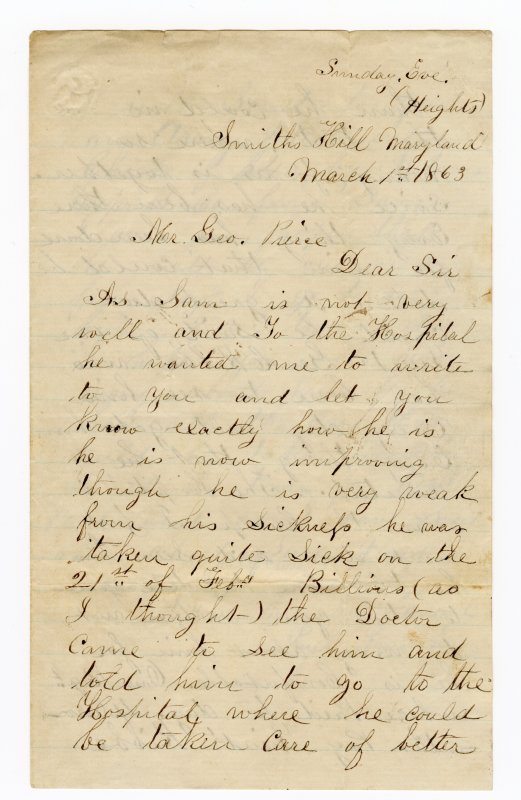 Sunday, Eve.
(Heights)
Smiths Hill Maryland
March 1st 1863
Mr. Geo. Pierce
Dear Sir
As Sam is not very
well and To the Hospital
he wanted me to write
to you and let you
know exactly how he is
he is now improoving
though he is very weak
from his Sickness he was
taken quite Sick on the
21st of Feb. Billious (as
I thought) the Doctor
came to see him and
told him to go to the
Hospital, where he could
be taken care of better